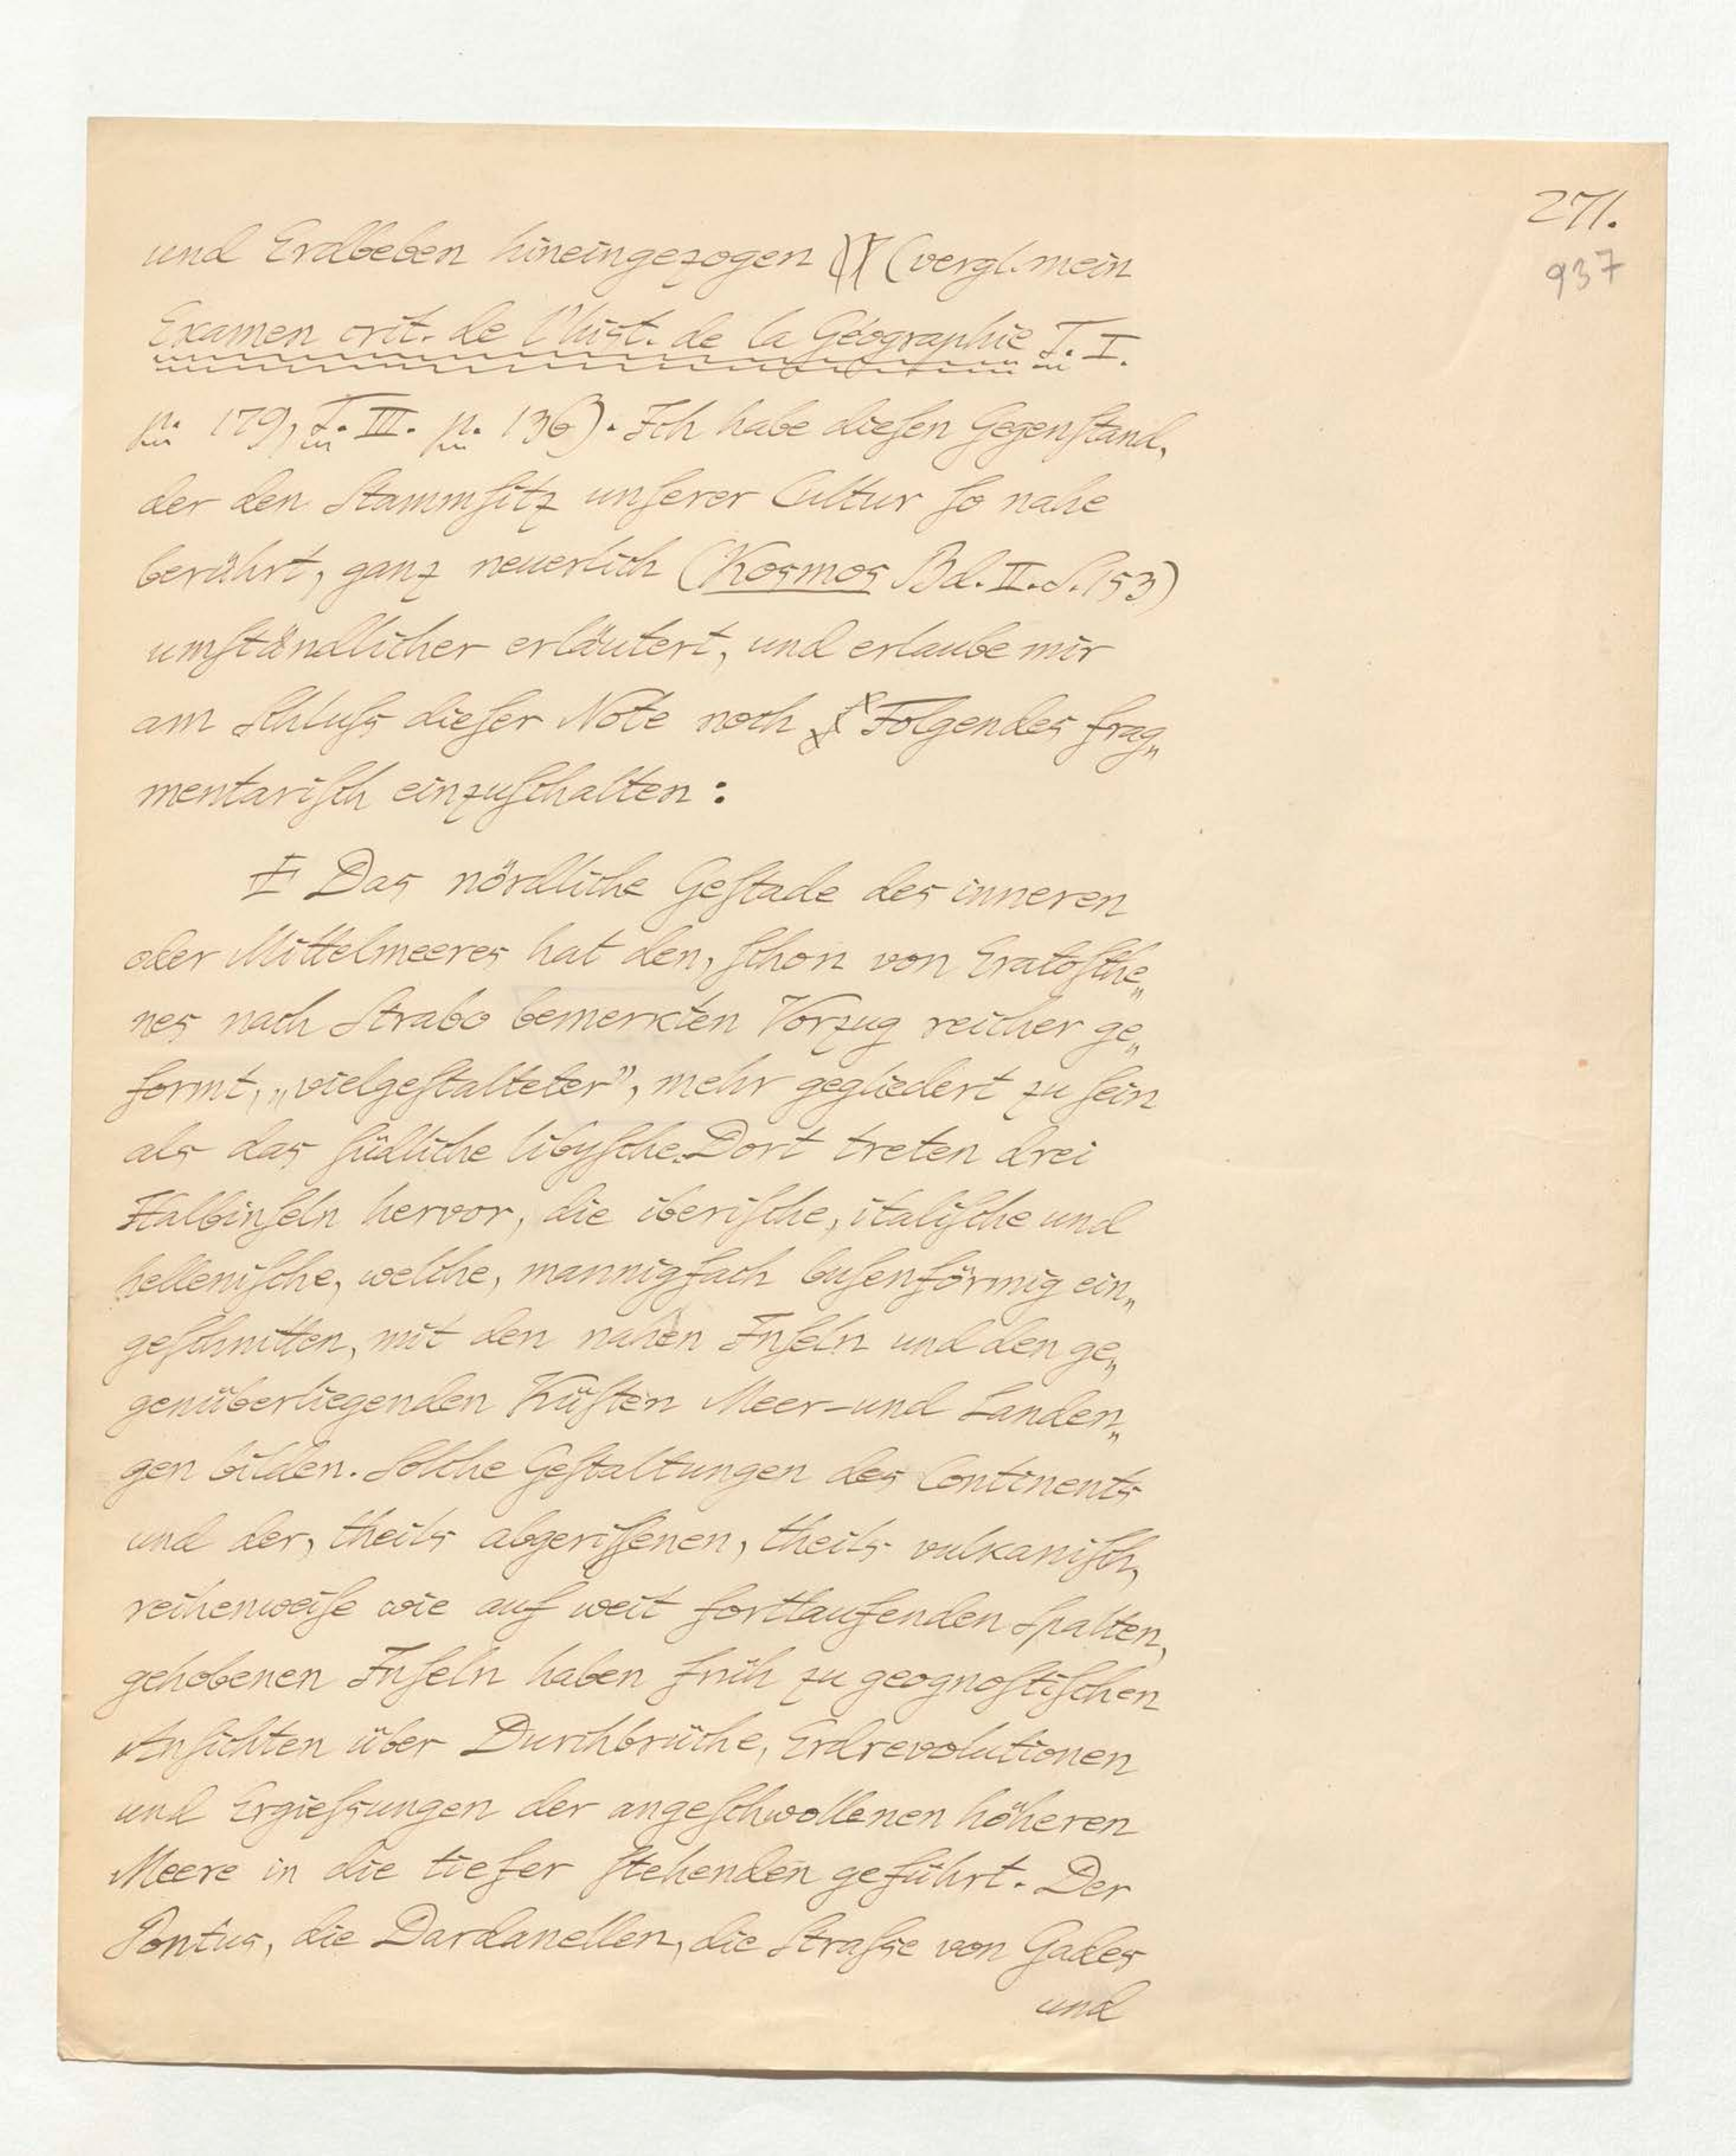 271.
937
und Erdbeben hineingezogen (vergl. mein
Examen crit. de l'hist. de la Géographie T. I.
p. 179, T. III. p. 136). Ich habe dieſen Gegenſtand,
der den Stammſitz unſerer Cultur ſo nahe
berührt, ganz neuerlich (Kosmos Bd. II. S. 153)
umſtändlicher erläutert, und erlaube mir
am Schluſs dieſer Note noch Folgendes frag„
mentariſch einzuſchalten:
Das nördliche Geſtade des inneren
oder Mittelmeeres hat den, ſchon von Eratoſthe„
nes nach Strabo bemerkten Vorzug reicher ge„
formt, „vielgeſtalteter", mehr gegliedert zu ſein
als das ſüdliche libyſche. Dort treten drei
Halbinſeln hervor, die iberiſche, italiſche und
helleniſche, welche, mannigfach buſenförmig ein„
geſchnitten, mit den nahen Inſeln und den ge„
genüberliegenden Küſten Meer- und Landen„
gen bilden. Solche Geſtaltungen des Continents
und der, theils abgeriſſenen, theils vulkaniſch,
reihenweiſe wie auf weit fortlaufenden Spalten,
gehobenen Inſeln haben früh zu geognoſtiſchen
Anſichten über Durchbrüche, Erdrevolutionen
und Ergieſsungen der angeſchwollenen höheren
Meere in die tiefer ſtehenden geführt. Der
Pontus, die Dardanellen, die Straſse von Gades
und